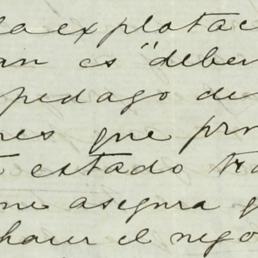 la explotac
an es "deber
pedago de
res que pro
estado tra
me asegura q
hacer el nego